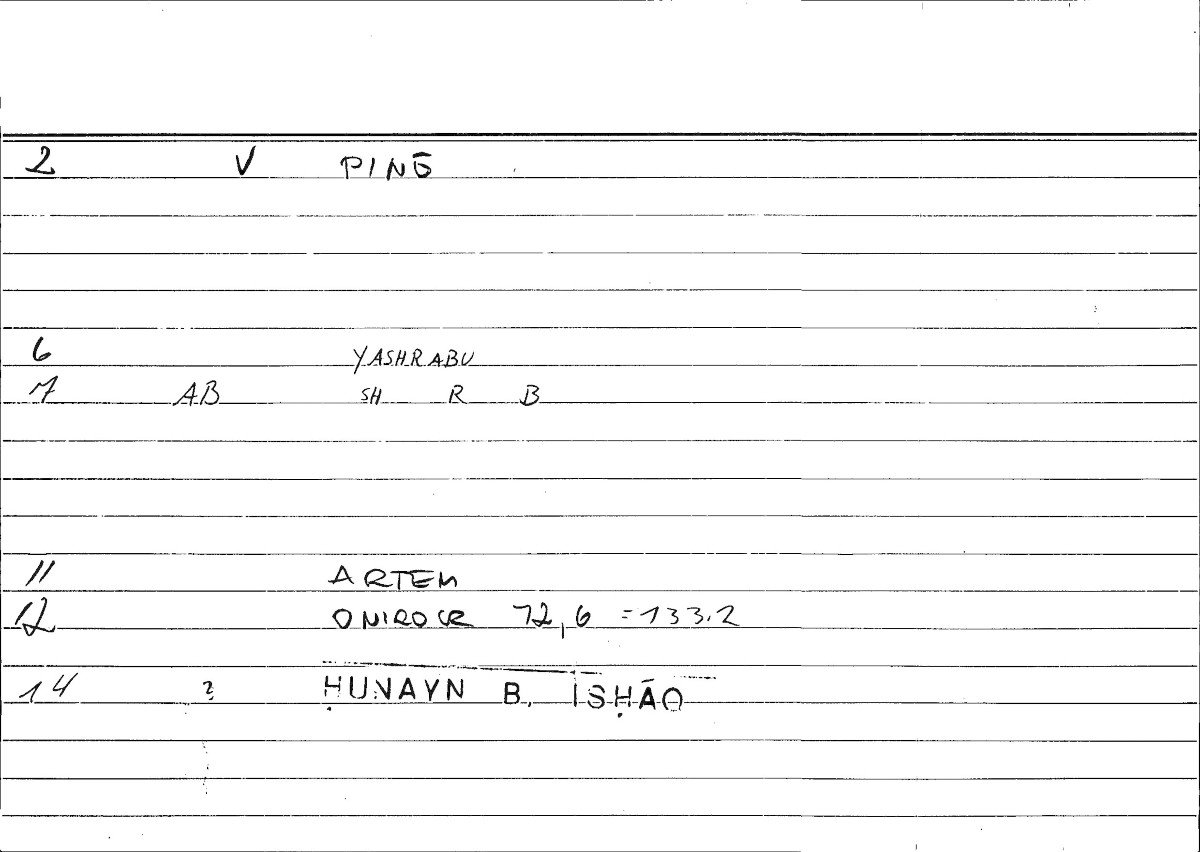 2 V PINŌ
6 YASHRABU
7 AB SH R B
11 ARTEM
12 ONIROCR 72,6 =133.2
14 ? ḤUNAYN B. ISḤĀQ